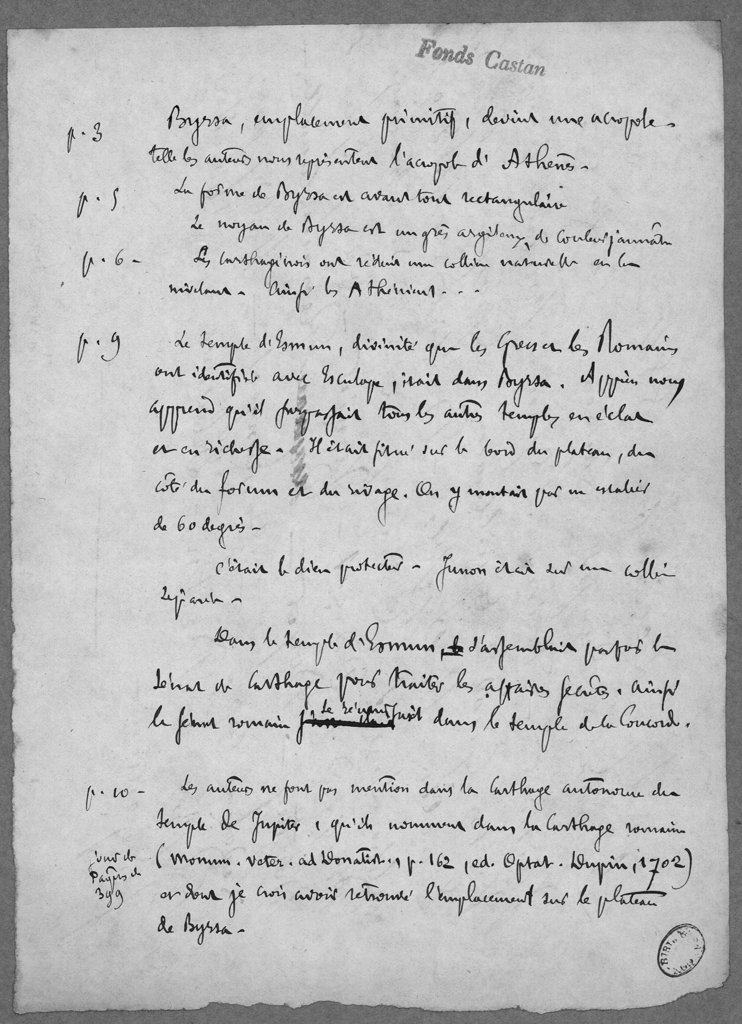 Fonds Castan
p. 3 Byrsa, emplacement primitif, devint une acropole -
telle les auteurs nous représentent l'acropole d'Athènes -
p. 5 La forme de Byrsa est avant tout rectangulaire
Le noyau de Byrsa est un grès argileux, de couleur jaunâtre
p. 6 - Les Carthaginois ont réduit une colline naturelle en la
nivelant - Ainsi les Athéniens - - -
p. 9 Le temple d'Esmun, divinité que les Grecs et les Romains
ont identifiée avec Esculape, était dans Byrsa. Appien nous
apprend qu'il surpassait tous les autres temples en éclat
et en richesse - Il était situé sur le bord du plateau, du
côté du forum et du rivage. On y montait par un escalier
de 60 degrés -
C'était le dieu protecteur - Junon était sur une colline
séparée -
Dans le temple d'Esmun, s'assemblait parfois le
Sénat de Carthage pour traiter les affaires secrètes. Ainsi
le Sénat romain se réunissait dans le temple de la Concorde.
p. 10 - Les auteurs ne font pas mention dans la Carthage autonome du
temple de Jupiter, qu'ils nomment dans la Carthage romaine
(Monum. veter. ad Donatist., p. 162, ed. Optat. Dupin, 1702)
399
et dont je crois avoir retrouvé l'emplacement sur le plateau
de Byrsa -